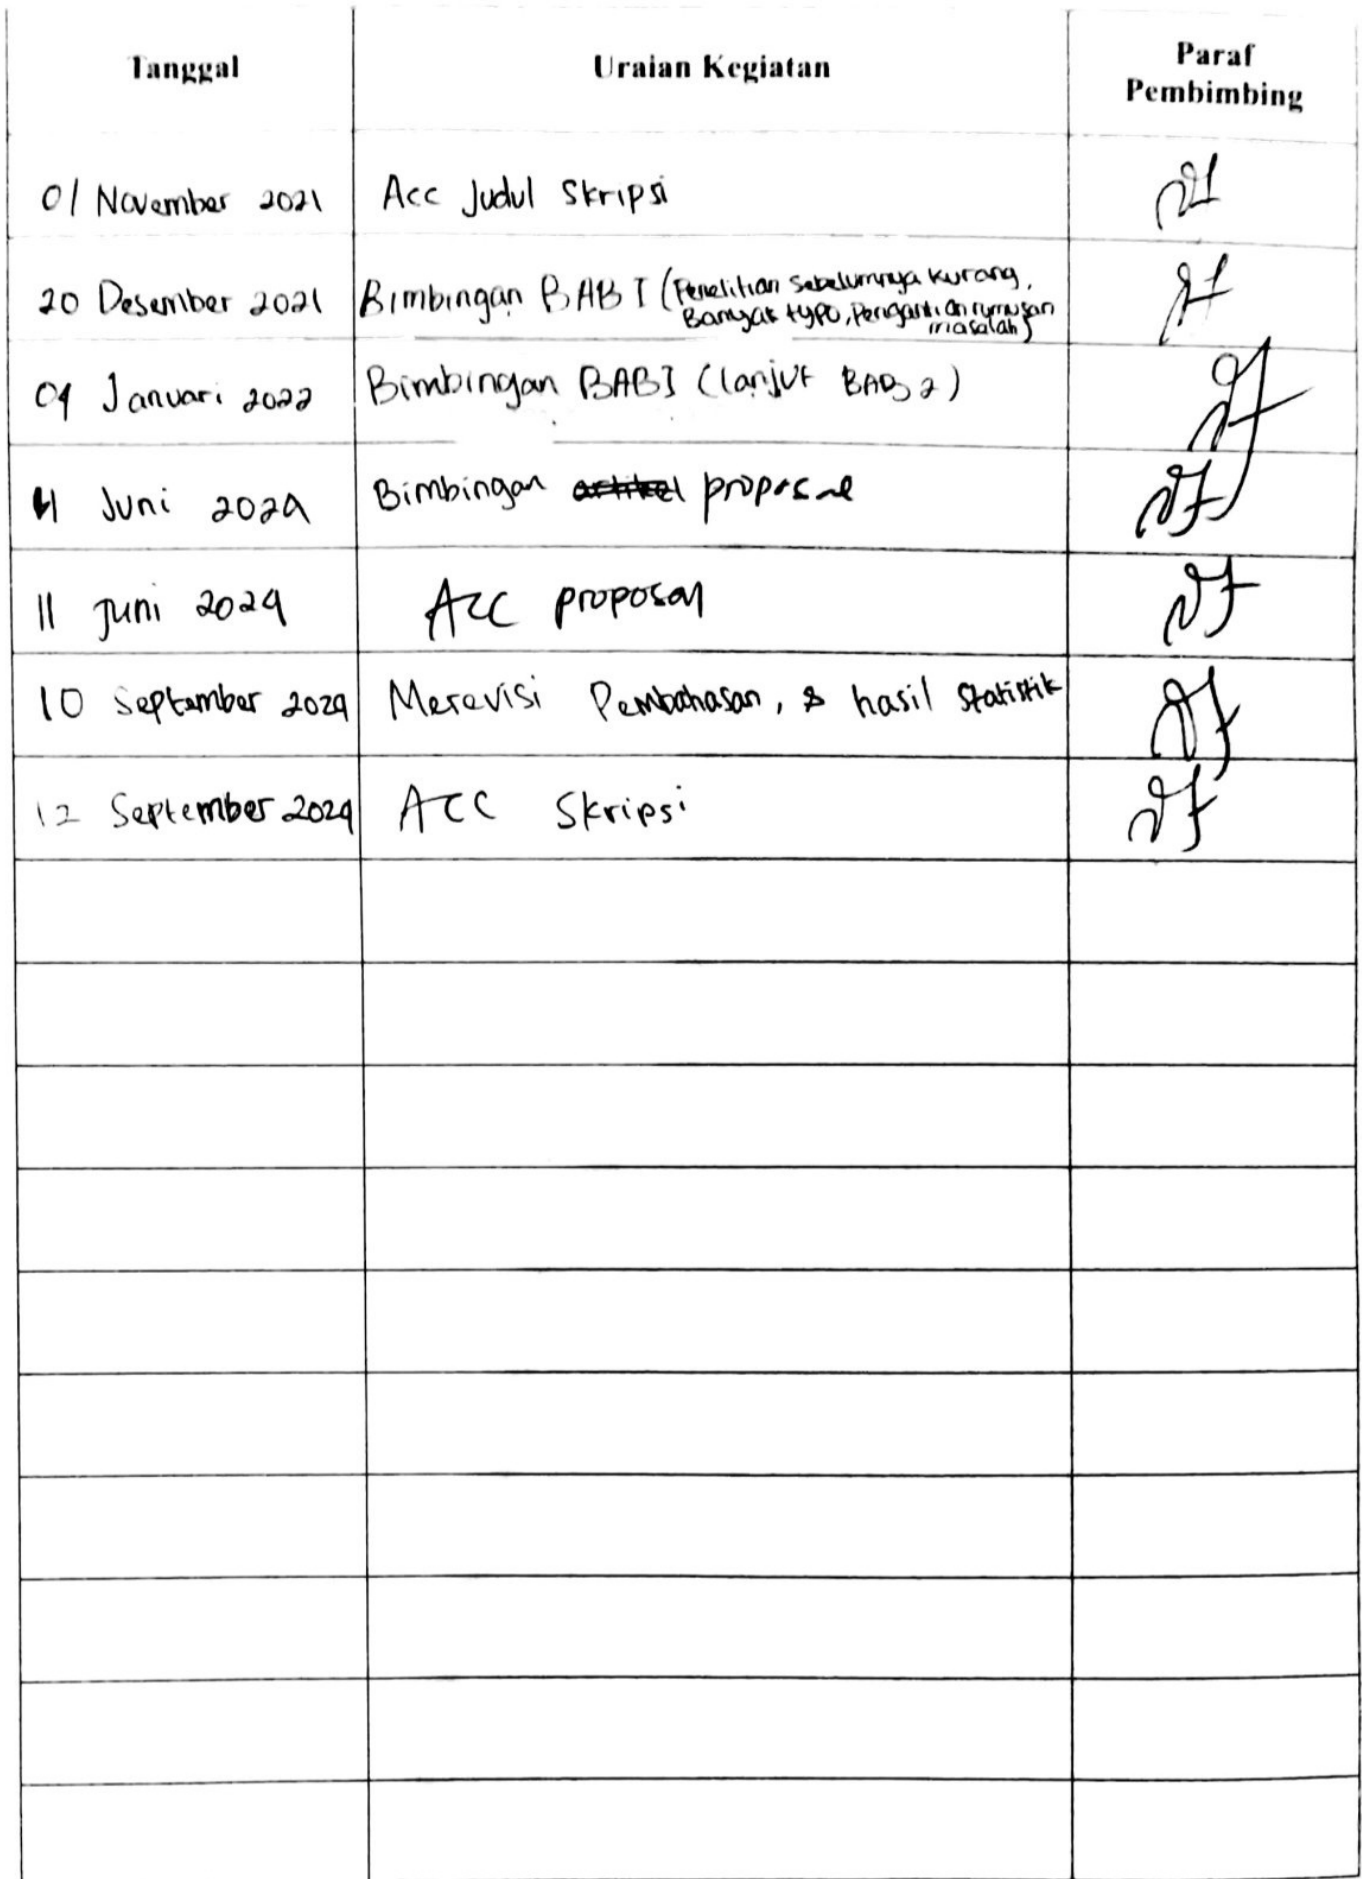 Tanggal Uraian Kegiatan Paraf
Pembimbing
01 November 2021 Acc Judul Skripsi
20 Desember 2021 Bimbingan BAB I (Penelitian Sebelumnya kurang,
Banyak typo, Pengantian rumusan
masalah)
04 Januari 2022 Bimbingan BAB I (lanjut BAB 2)
Juni 2024 Bimbingan proposal
11 Juni 2024 Acc proposal
10 September 2024 Merevisi Pembahasan, & hasil Statistik
12 September 2024 ACC Skripsi